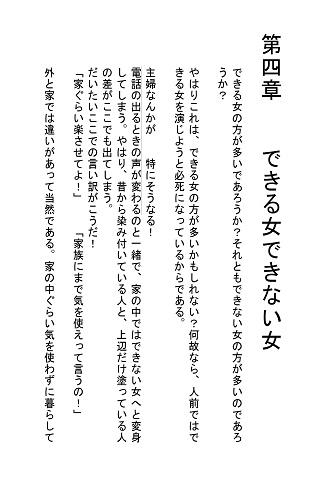 第四章　できる女できない女
できる女の方が多いであろうか？それともできない女の方が多いのであろ
うか？
やはりこれは、できる女の方が多いかもしれない？何故なら、人前ではで
きる女を演じようと必死になっているからである。
主婦なんかが　特にそうなる！
電話の出るときの声が変わるのと一緒で、家の中ではできない女へと変身
してしまう。やはり、昔から染み付いている人と、上辺だけ塗っている人
の差がここでも出てしまう。
だいたいここでの言い訳がこうだ！
「家ぐらい楽させてよ！」　「家族にまで気を使えって言うの！」
外と家では違いがあって当然である。家の中ぐらい気を使わずに暮らして